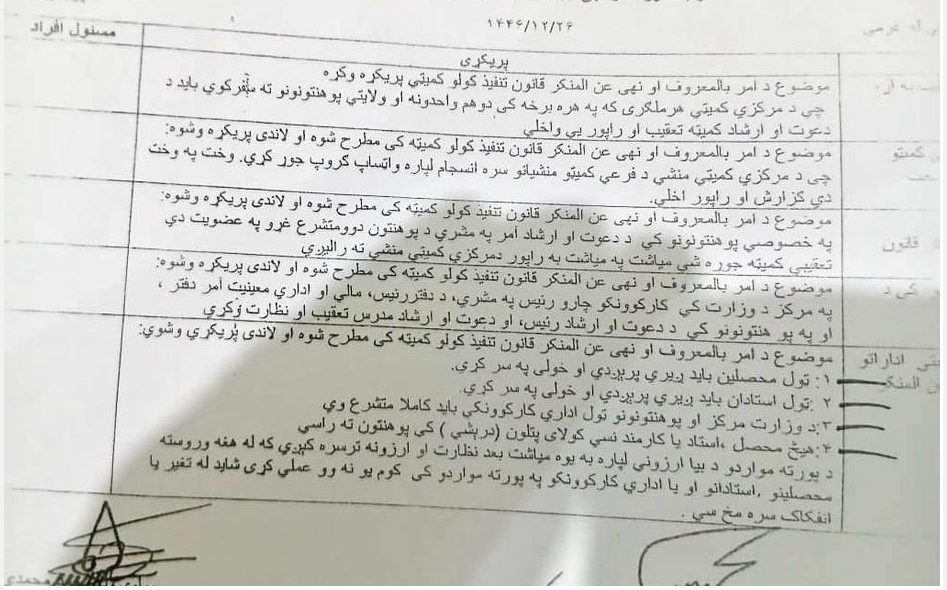 ۱۴۴۶/۱۲/۲۶
مسئول افراد
پریکړی
موضوع د امر بالمعروف او نهی عن المنکر قانون تنفیذ کولو کمیټي پریکړه وکړه
چی د مرکزي کمیټي هرملګری که په هره برخه کی دوهم واحدونه او ولایتي پوهنتونونو ته سفرکوي باید د
دعوت او ارشاد کمیټه تعقیب او راپور یي واخلي
موضوع د امر بالمعروف او نهی عن المنکر قانون تنفیذ کولو کمیټه کی مطرح شوه او لاندی پریکړه وشوه:
چی د مرکزي کمیټي منشي د فرعي کمیټو منشیانو سره انسجام لپاره واتساپ ګروپ جوړ کړي. وخت په وخت
دي ګزارش او راپور اخلي.
موضوع د امر بالمعروف او نهی عن المنکر قانون تنفیذ کولو کمیټه کی مطرح شوه او لاندی پریکړه وشوه:
په خصوصي پوهنتونونو کي د دعوت او ارشاد آمر په مشري د پوهنتون دوومتشرع غړو په عضویت دي
تعقیبي کمیټه جوړه شي میاشت په میاشت به راپور دمرکزي کمیټي منشي ته رالیږي
موضوع د امر بالمعروف او نهی عن المنکر قانون تنفیذ کولو کمیټه کی مطرح شوه او لاندی پریکړه وشوه:
په مرکز د وزارت کي کارکوونکو چارو رئیس په مشرۍ، د دفتررئیس، مالي او اداري معینیت آمر دفتر ،
او په پو هنتونونو کي د دعوت او ارشاد رئیس، او دعوت او ارشاد مدرس تعقیب او نظارت وکړي
موضوع د امر بالمعروف او نهی عن المنکر قانون تنفیذ کولو کمیټه کی مطرح شوه او لاندی پریکړي وشوي:
۱: ټول محصلین باید ږیري پریږدي او خولی په سر کړي.
۲ :ټول استادان باید ږیري پریږدي او خولی په سر کړي.
۳:د وزارت مرکز او پوهنتونونو ټول اداري کارکوونکي باید کاملا متشرع وي
۴:هیڅ محصل ،استاد یا کارمند نسي کولای پتلون (دریشي ) کي پوهنتون ته راسي
د پورته مواردو د بیا ارزوني لپاره به یوه میاشت بعد نظارت او ارزونه ترسره کیږي که له هغه وروسته
محصلینو ,استادانو او یا اداري کارکوونکو په پورته مواردو کی کوم یو نه وو عملي کړی شاید له تغیر یا
انفکاک سره مخ سي .
کمیټو
قانون
کی د
اداراتو
المنکر
محمدي